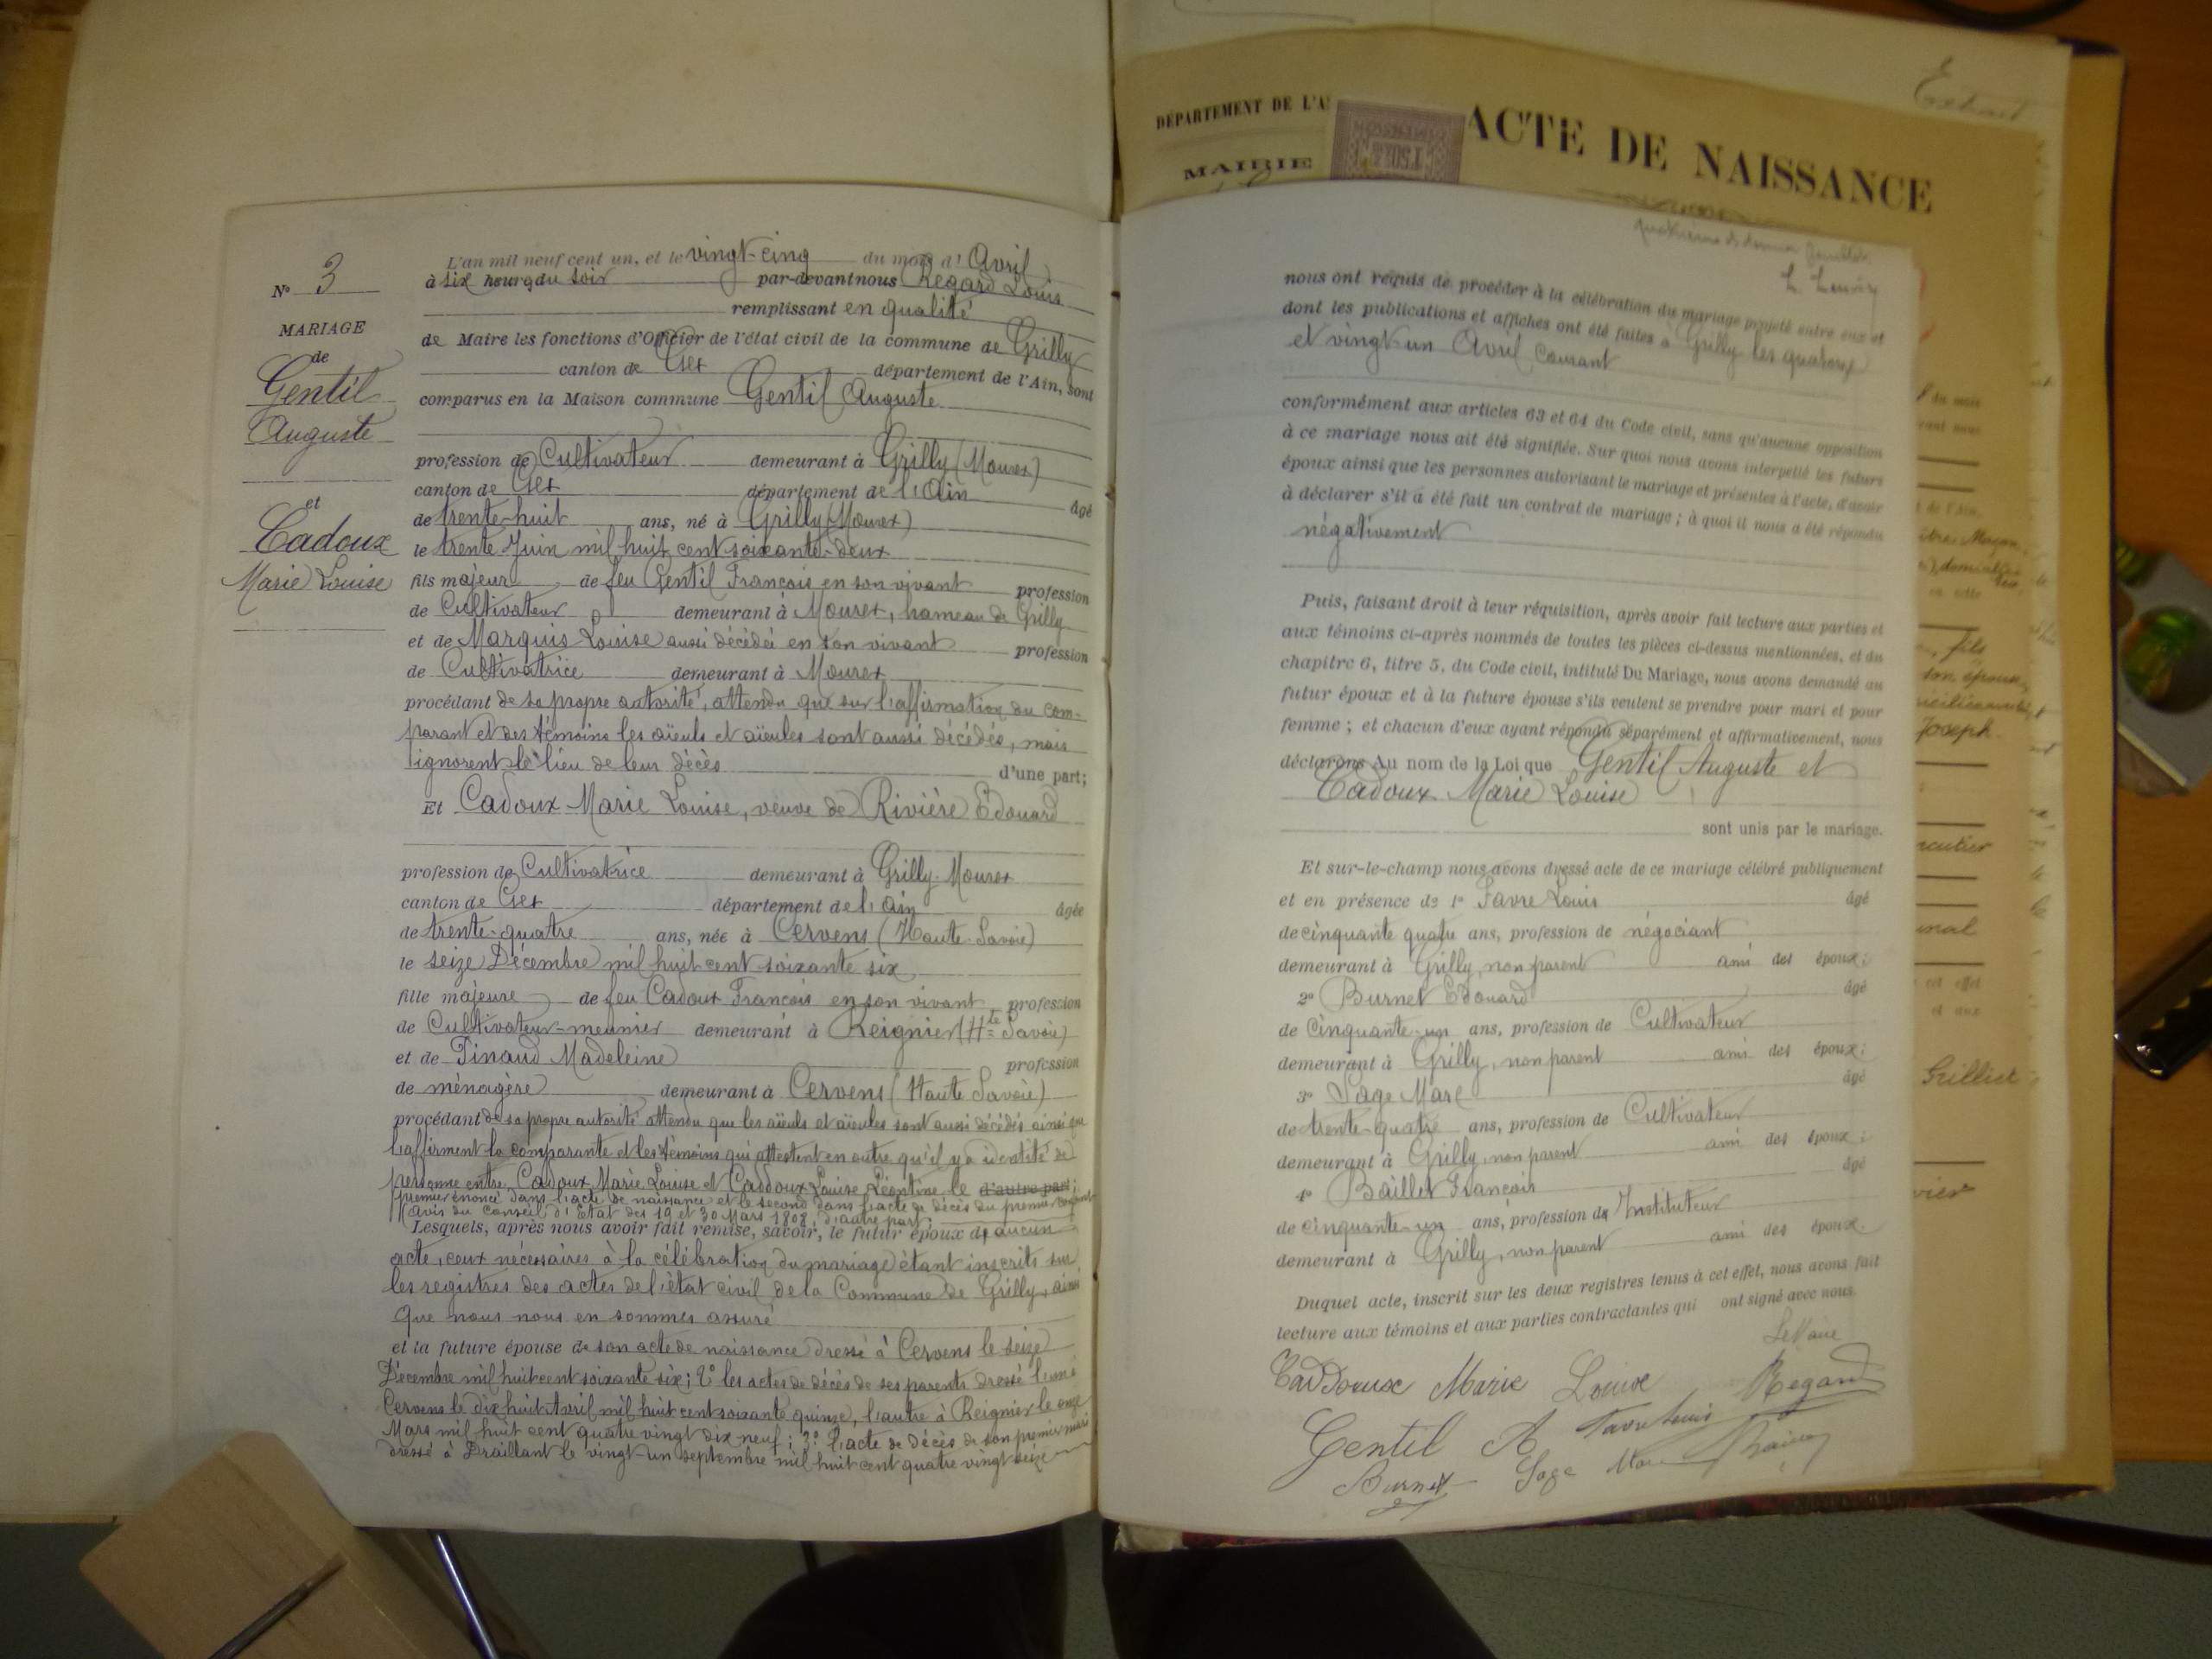 N° 3
MARIAGE
de
Gentil
Auguste
et
Cadoux
Marie Louise
L'an mil neuf cent un, et le vingt-cinq du mois d'Avril
à six heures du soir par-devant nous Regard Louis
remplissant en qualité
de Maire les fonctions d'Officier de l'état civil de la commune de Grilly
canton de Gex département de l'Ain, sont
comparus en la Maison commune Gentil Auguste
profession de Cultivateur demeurant à Grilly (Mourex)
canton de Gex département de l'Ain âgé
de trente-huit ans, né à Grilly (Mourex)
le trente Juin mil huit cent soixante-deux
fils majeur de feu Gentil François en son vivant profession
de Cultivateur demeurant à Mourex, hameau de Grilly
et de Marquis Louise aussi décédée en son vivant profession
de Cultivatrice demeurant à Mourex
procédant de sa propre autorité, attendu que sur l'affirmation du com-
parant et des témoins les aïeuls et aïeules sont aussi décédés, mais
ignorent le lieu de leur décès d'une part;
Et Cadoux Marie Louise, veuve de Rivière Edouard
profession de Cultivatrice demeurant à Grilly-Mourex
canton de Gex département de l'ain âgée
de trente-quatre ans, née à Cervens (Haute-Savoie)
le seize Décembre mil huit cent soixante six
fille majeure de feu Cadoux François en son vivant profession
de Cultivateur-meunier demeurant à Reignier (Hte Savoie)
et de Pinaud Madeleine profession
de ménagère demeurant à Cervens (Haute Savoie)
procédant de sa propre autorité attendu que les aïeuls et aïeules sont aussi décédés ainsi que
l'affirment la comparante et les témoins qui attestent en outre qu'il y a identité de
personne entre Cadoux Marie Louise et Caddoux Louise Léontine le d'autre part;
premier énoncé dans l'acte de naissance et le second dans l'acte de décès du premier conjoint
(avis du Conseil d'Etat des 19 et 30 Mars 1808, d'autre part;
Lesquels, après nous avoir fait remise, savoir, le futur époux d'aucun
acte, ceux nécessaires à la célébration du mariage étant inscrits sur
les registres des actes de l'état civil de la Commune de Grilly, ainsi
que nous nous en sommes assuré
et la future épouse de son acte de naissance dressé à Cervens le seize
Décembre mil huit cent soixante six; 2° les actes de décès de ses parents dressé l'un à
Cervens le dix huit Avril mil huit cent soixante quinze, l'autre à Reignier le onze
Mars mil huit cent quatre vingt dix neuf; 3° l'acte de décès de son premier mari
dressé à Draillant le vingt-un septembre mil huit cent quatre vingt seize
Extrait
DÉPARTEMENT DE L'A
MAIRIE
ACTE DE NAISSANCE
nous ont requis de procéder à la célébration du mariage projeté entre eux et
dont les publications et affiches ont été faites à Grilly les quatorze
et vingt-un Avril Courant
conformément aux articles 63 et 64 du Code civil, sans qu'aucune opposition
à ce mariage nous ait été signifiée. Sur quoi nous avons interpellé les futurs
époux ainsi que les personnes autorisant le mariage et présentes à l'acte, d'avoir
à déclarer s'il a été fait un contrat de mariage; à quoi il nous a été répondu
négativement
Puis, faisant droit à leur réquisition, après avoir fait lecture aux parties et
aux témoins ci-après nommés de toutes les pièces ci-dessus mentionnées, et du
chapitre 6, titre 5, du Code civil, intitulé Du Mariage, nous avons demandé au
futur époux et à la future épouse s'ils veulent se prendre pour mari et pour
femme; et chacun d'eux ayant répondu séparément et affirmativement, nous
déclarons Au nom de la Loi que Gentil Auguste et
Cadoux Marie Louise
sont unis par le mariage.
Et sur-le-champ nous avons dressé acte de ce mariage célébré publiquement
et en présence de 1° Favre Louis âgé
de cinquante quatre ans, profession de négociant
demeurant à Grilly, non parent ami des époux;
2° Burnet Edouard âgé
de Cinquante-un ans, profession de Cultivateur
demeurant à Grilly, non parent ami des époux;
3° Sage Marc âgé
de trente-quatre ans, profession de Cultivateur
demeurant à Grilly, non parent ami des époux;
4° Baillet François âgé
de cinquante-un ans, profession de Instituteur
demeurant à Grilly, non parent ami des époux.
Duquel acte, inscrit sur les deux registres tenus à cet effet, nous avons fait
lecture aux témoins et aux parties contractantes qui ont signé avec nous.
Le Maire
Caddoux Marie Louise Regard
Gentil A Favre Louis
Burnet Sage Marc